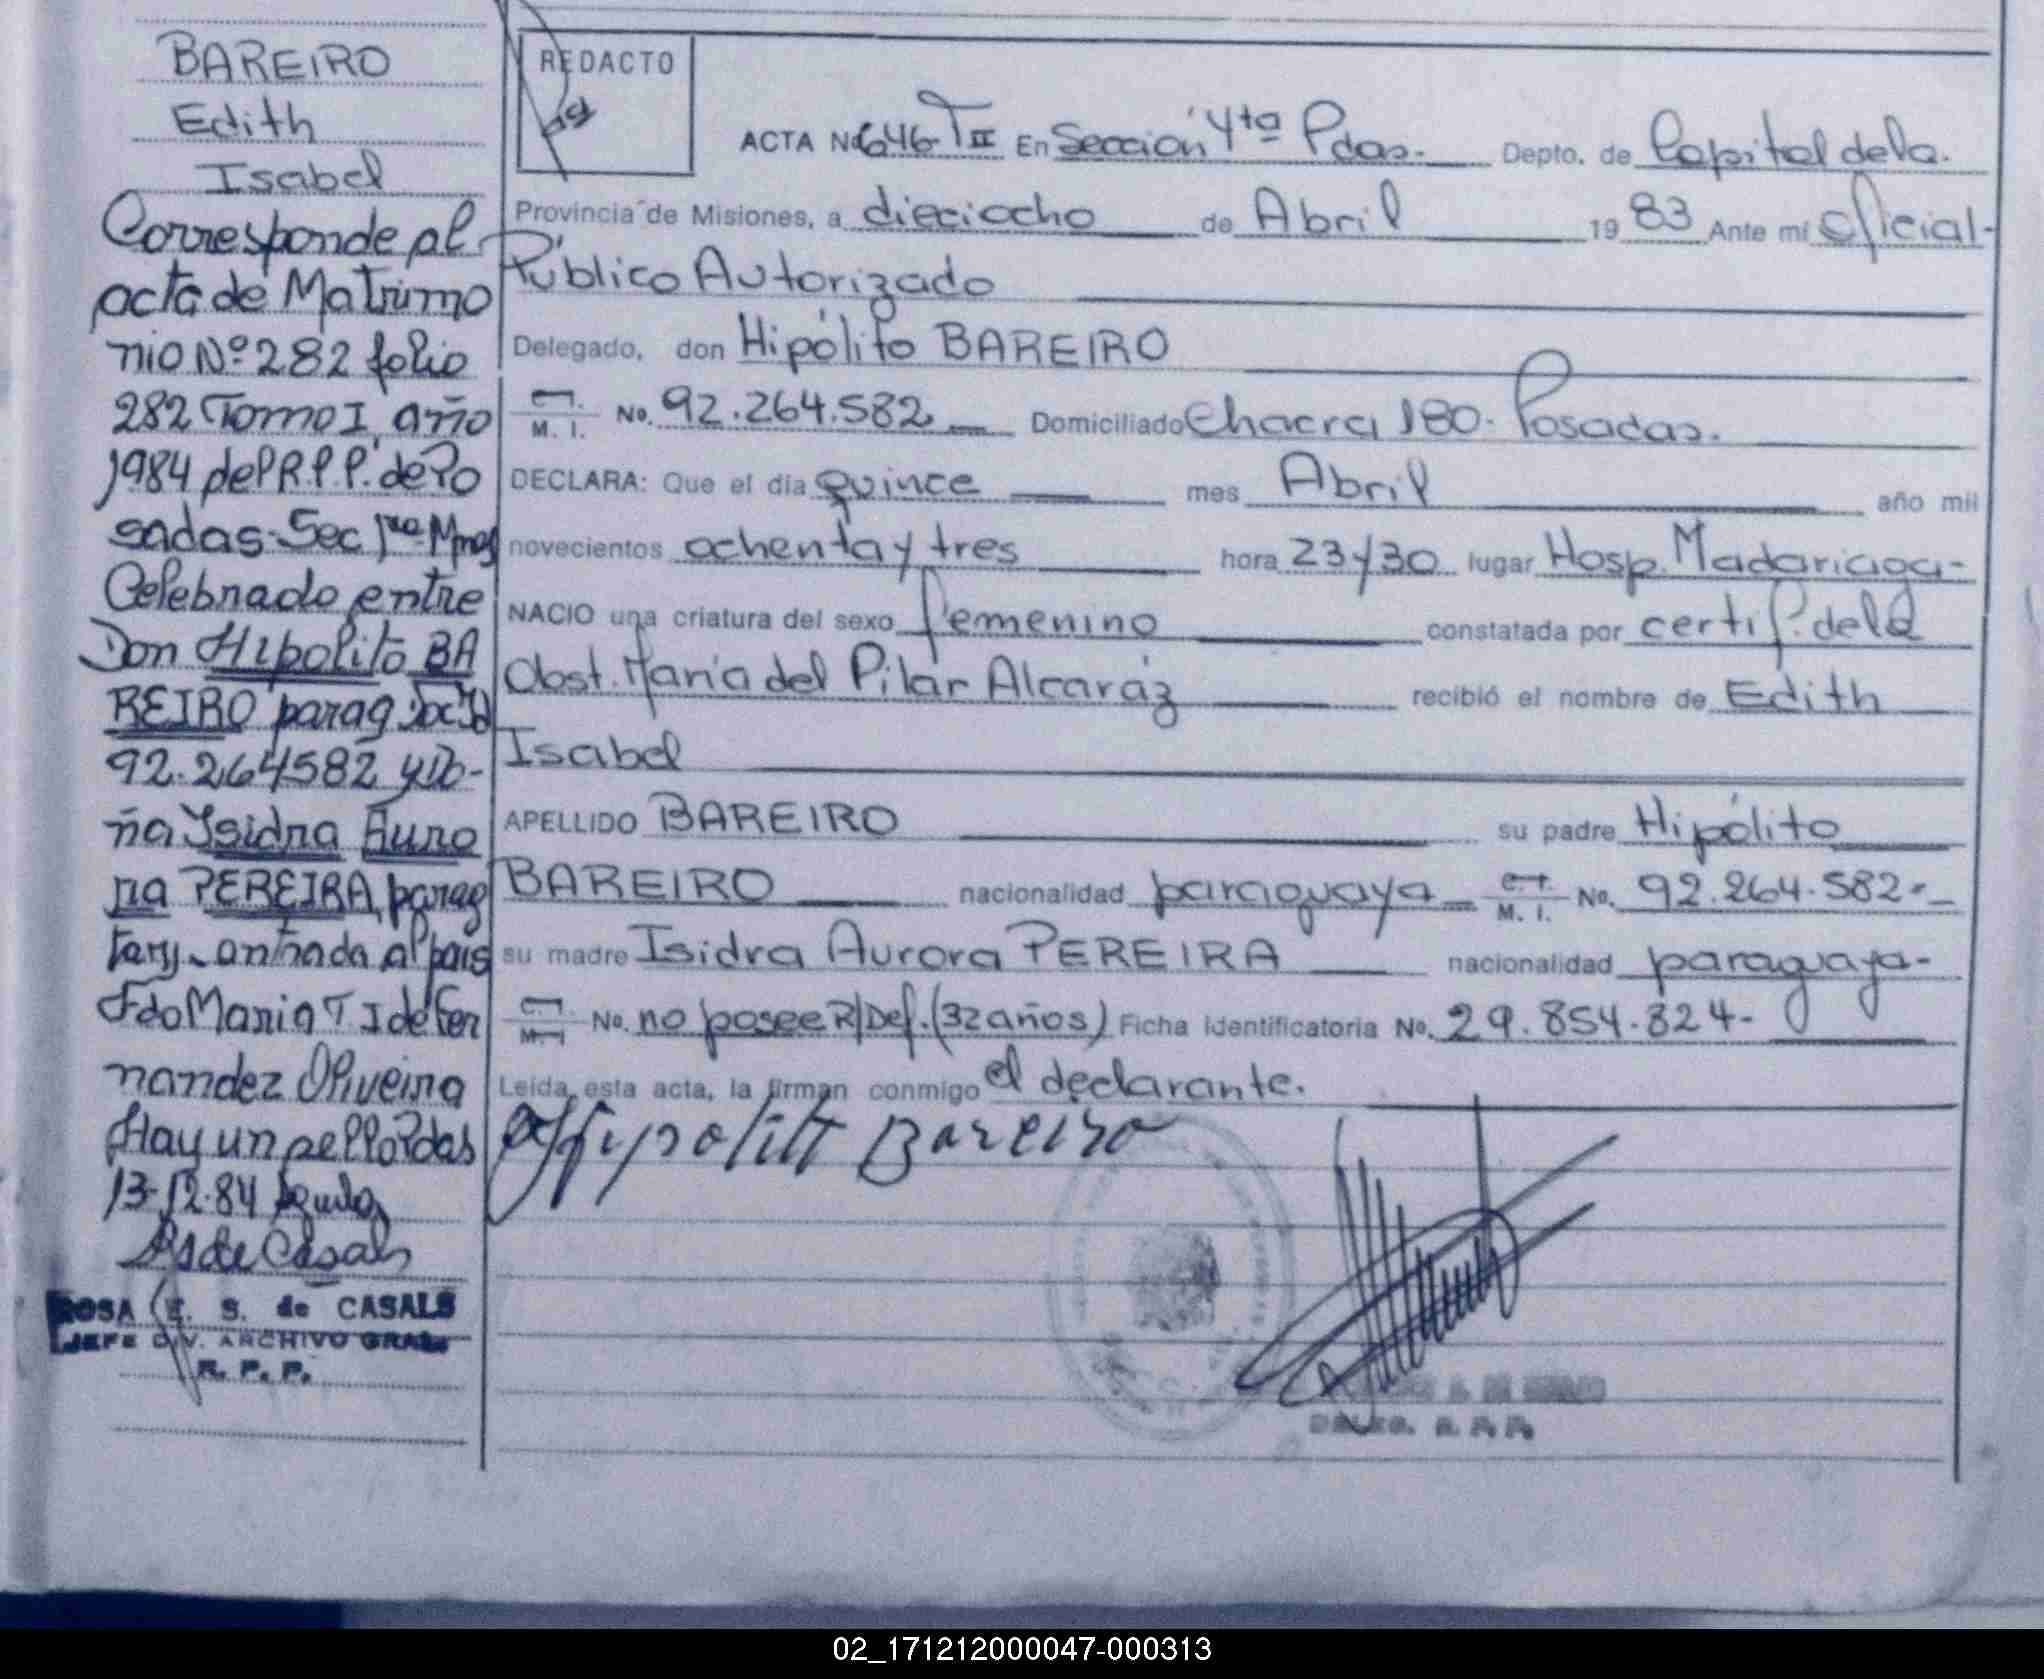 BAREIRO
Edith
Isabel
Corresponde al
acta de Matrimo
nio Nº 282 folio
282 Tomo I, año
1984 del R.P.P. de Po
sadas-Sec 1ra Mnes
Celebrado entre
Don Hipolito BA
REIRO parag Doc Id
92.264582 y Do-
ña Isidra Auro
ra PEREIRA, parag
entrada al pais
Fdo Maria T I de Fer
nandez Oliveira
Hay un sello Pdas
13-12-84
RS de Casals
ROSA E. S. de CASALS
JEFE DIV. ARCHIVO GRAL.
R. P. P.
REDACTO
ACTA No 646-T II En Sección 4ta Pdas. Depto. de Capital de la.
Provincia de Misiones, a dieciocho de Abril 1983 Ante mí Oficial-
Público Autorizado
Delegado, don Hipólito BAREIRO
C.I. M. I. No. 92.264.582 Domiciliado Chacra 180. Posadas.
DECLARA: Que el día quince mes Abril año mil
novecientos ochenta y tres hora 23 y 30 lugar Hosp. Madariaga-
NACIO una criatura del sexo femenino constatada por certif. de la
Obst. María del Pilar Alcaráz recibió el nombre de Edith
Isabel
APELLIDO BAREIRO su padre Hipólito
BAREIRO nacionalidad paraguaya C.I. M. I. No. 92.264.582.-
su madre Isidra Aurora PEREIRA nacionalidad paraguaya-
C.I. M.I. No. no posee R/Def. (32 años) Ficha identificatoria No. 29.854.824-
Leída esta acta, la firman conmigo el declarante.
Hipolito Bareiro
02_171212000047-000313